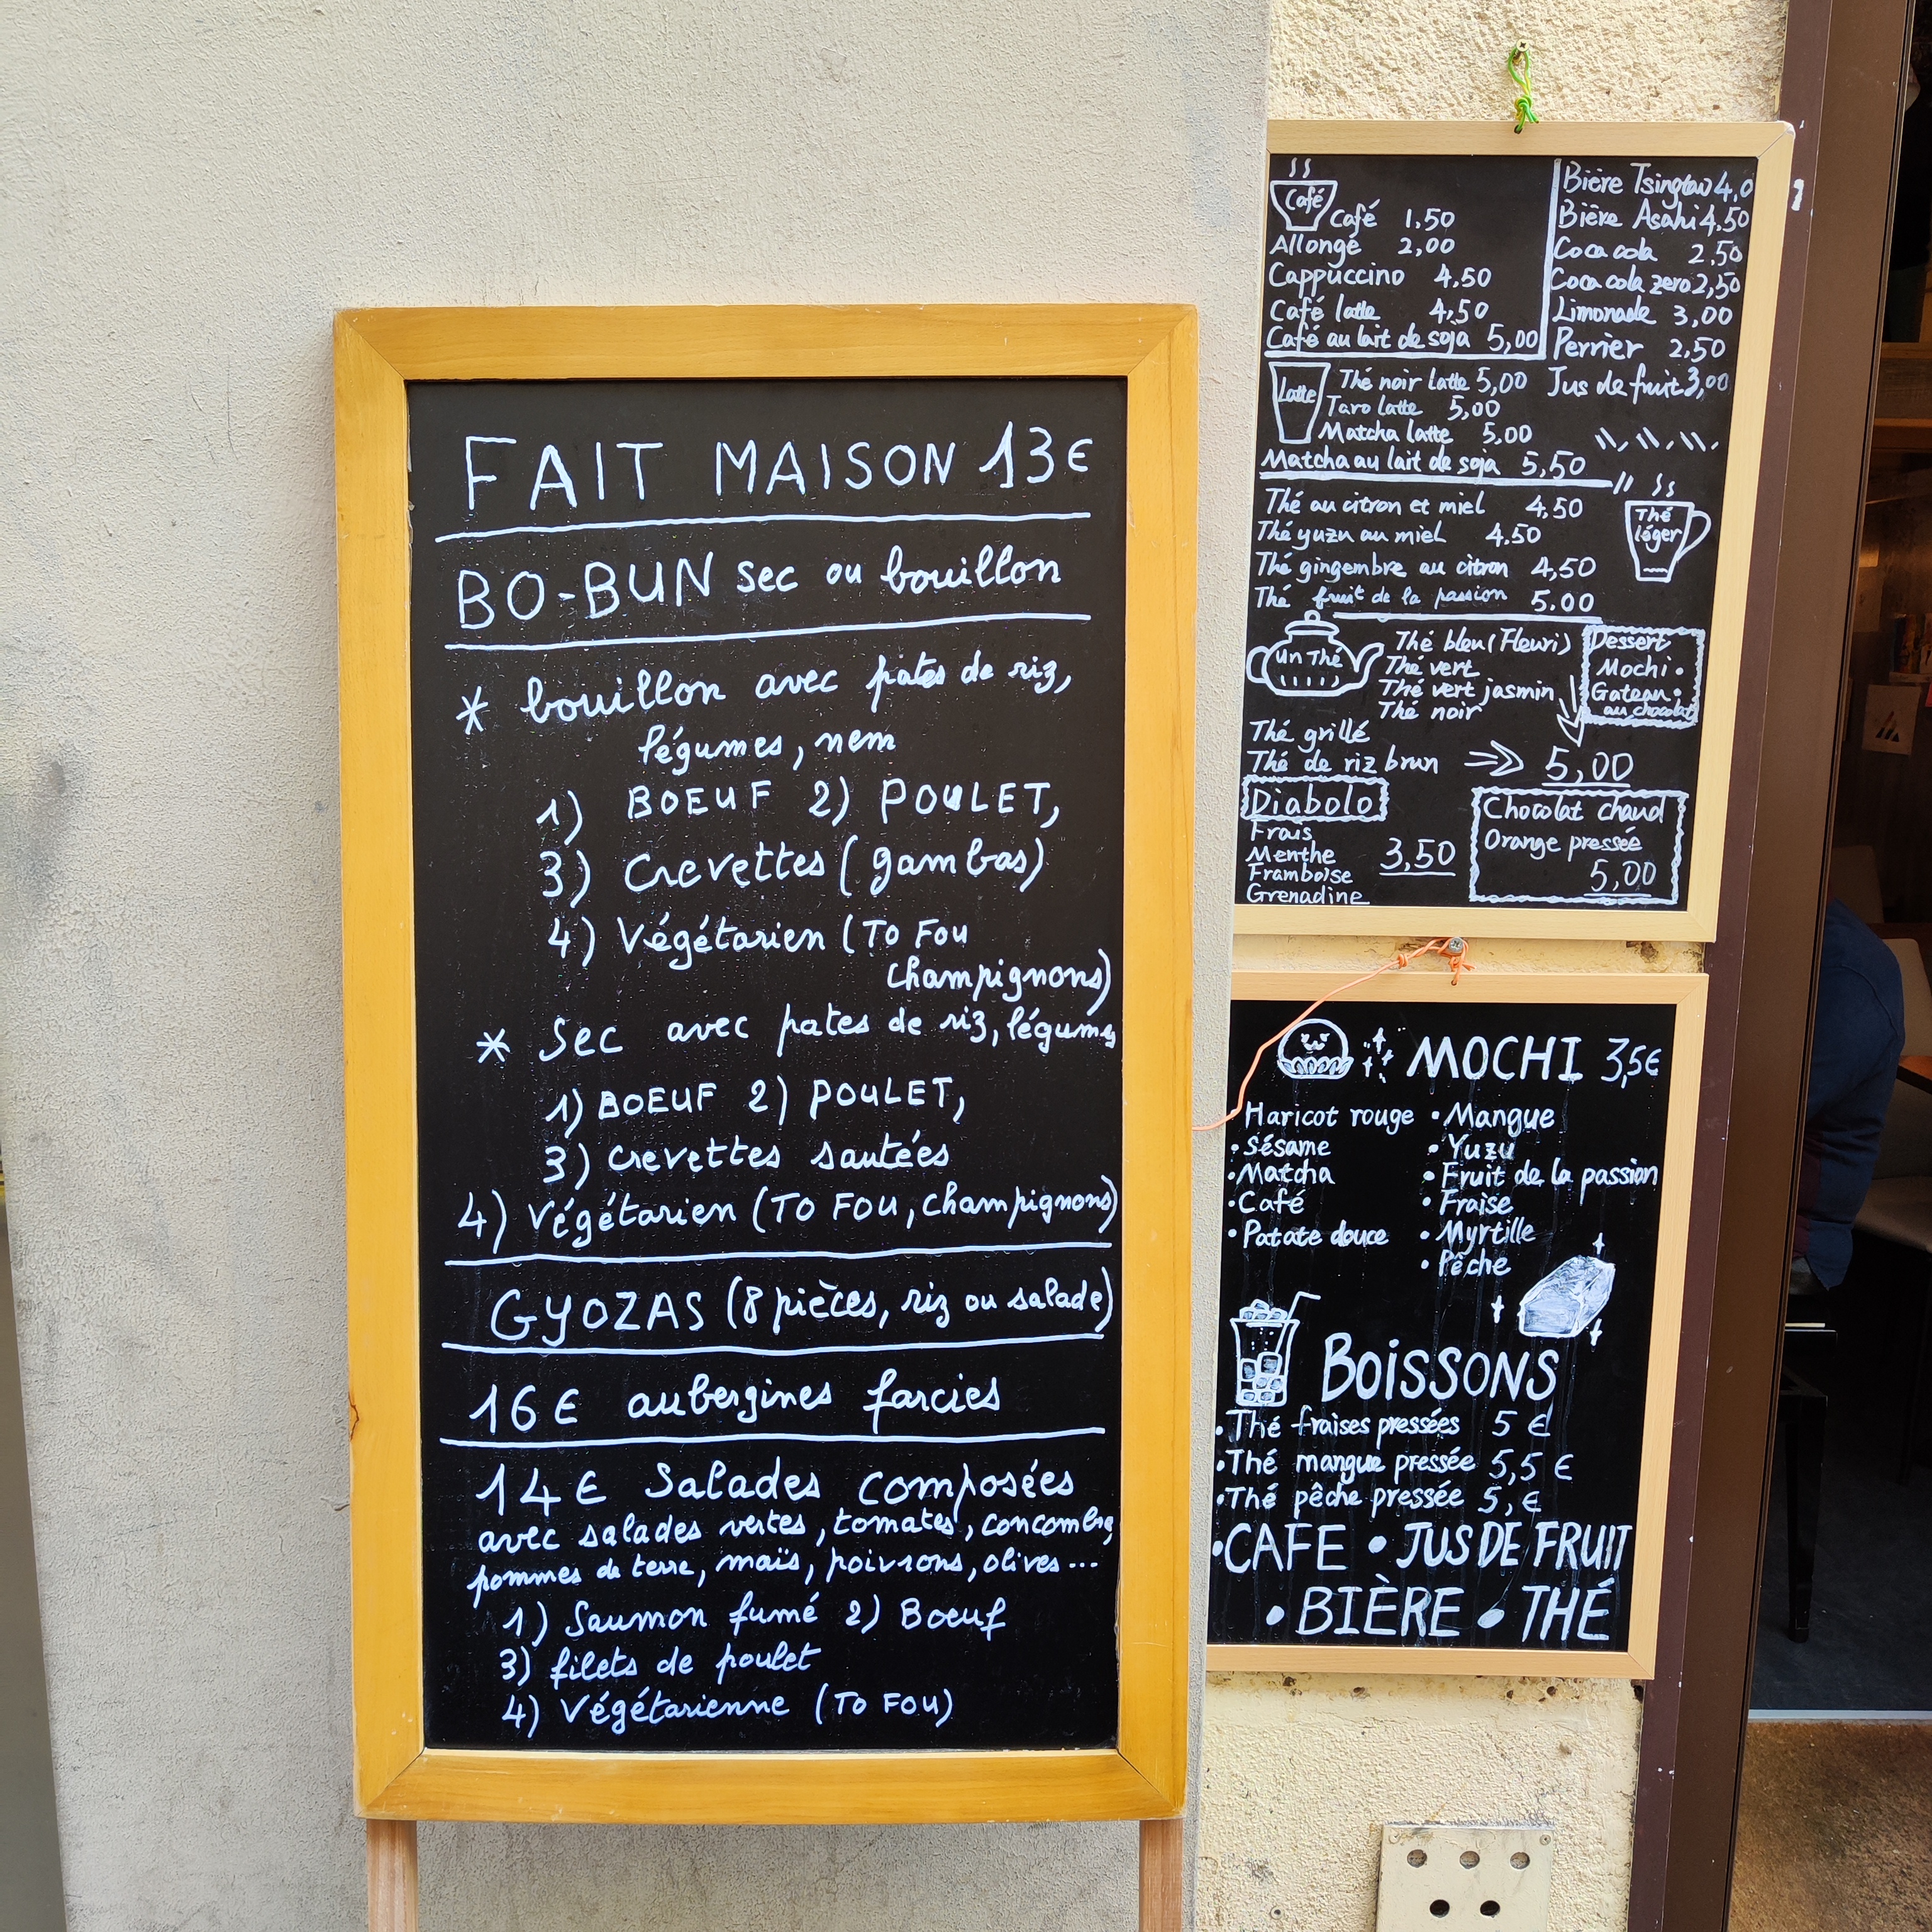 FAIT MAISON 13€
BO-BUN sec ou bouillon
* bouillon avec pates de riz,
légumes, nem
1) BOEUF 2) POULET,
3) Crevettes (gambas)
4) Végétarien (TO FOU
champignons)
* Sec avec pates de riz, légumes
1) BOEUF 2) POULET,
3) crevettes sautées
4) végétarien (TO FOU, champignons)
GYOZAS (8 pièces, riz ou salade)
16€ aubergines farcies
14€ Salades composées
avec salades vertes, tomates, concombre,
pommes de terre, maïs, poivrons, olives...
1) Saumon fumé 2) Boeuf
3) filets de poulet
4) Végétarienne (TO FOU)
Café
Café 1,50
Allongé 2,00
Cappuccino 4.50
Café latte 4,50
Café au lait de soja 5,00
Bière Tsingtao 4,0
Bière Asahi 4,50
Coca cola 2,50
Coca cola zero 2,50
Limonade 3,00
Perrier 2,50
Jus de fruit 3,00
Latte
Thé noir latte 5,00
Taro latte 5,00
Matcha latte 5,00
Matcha au lait de soja 5,50
Thé au citron et miel 4,50
Thé yuzu au miel 4.50
Thé gingembre au citron 4,50
Thé fruit de la passion 5.00
Thé
léger
un Thé
Thé bleu (Fleuri)
Thé vert
Thé vert jasmin
Thé noir
Thé grillé
Thé de riz brun
5,00
Dessert
Mochi •
Gateau •
au chocolat
Diabolo
Frais
Menthe 3,50
Framboise
Grenadine
Chocolat chaud
Orange pressée
5,00
MOCHI 3,5€
Haricot rouge
• Sésame
• Matcha
• Café
• Patate douce
• Mangue
• Yuzu
• Fruit de la passion
• Fraise
• Myrtille
• Pêche
BOISSONS
• Thé fraises pressées 5 €
• Thé mangue pressée 5,5 €
• Thé pêche pressée 5, €
• CAFE • JUS DE FRUIT
• BIÈRE • THÉ